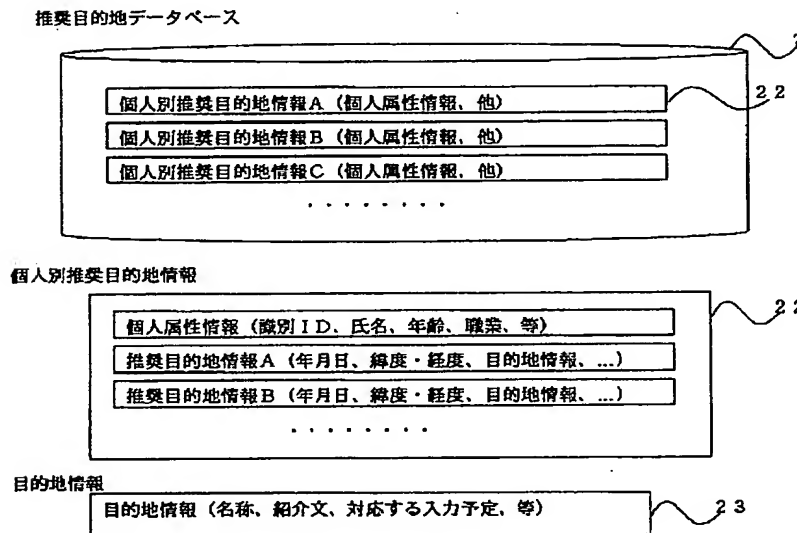 推奨目的地データベース
個人別推奨目的地情報A（個人属性情報、他）
22
個人別推奨目的地情報B（個人属性情報、他）
個人別推奨目的地情報C（個人属性情報、他）
・・・・・・・・
個人別推奨目的地情報
個人属性情報（識別ID、氏名、年齢、職業、等）
22
推奨目的地情報A（年月日、緯度・経度、目的地情報、...）
推奨目的地情報B（年月日、緯度・経度、目的地情報、...）
・・・・・・・・
目的地情報
目的地情報（名称、紹介文、対応する入力予定、等）
23